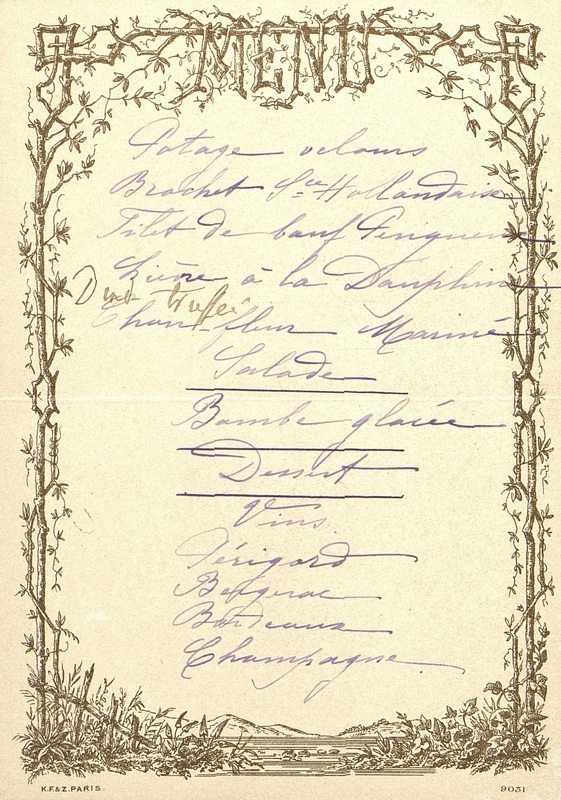 MENU
Potage velours
Brochet Sce Hollandaise
Filet de bœuf
à la Dauphine
Dinde truffée
Chou-fleur Mariné
Salade
Bombe glacée
Dessert
Vins
Périgord
Bergerac
Bordeaux
Champagne
K.F.&Z.PARIS.
9031